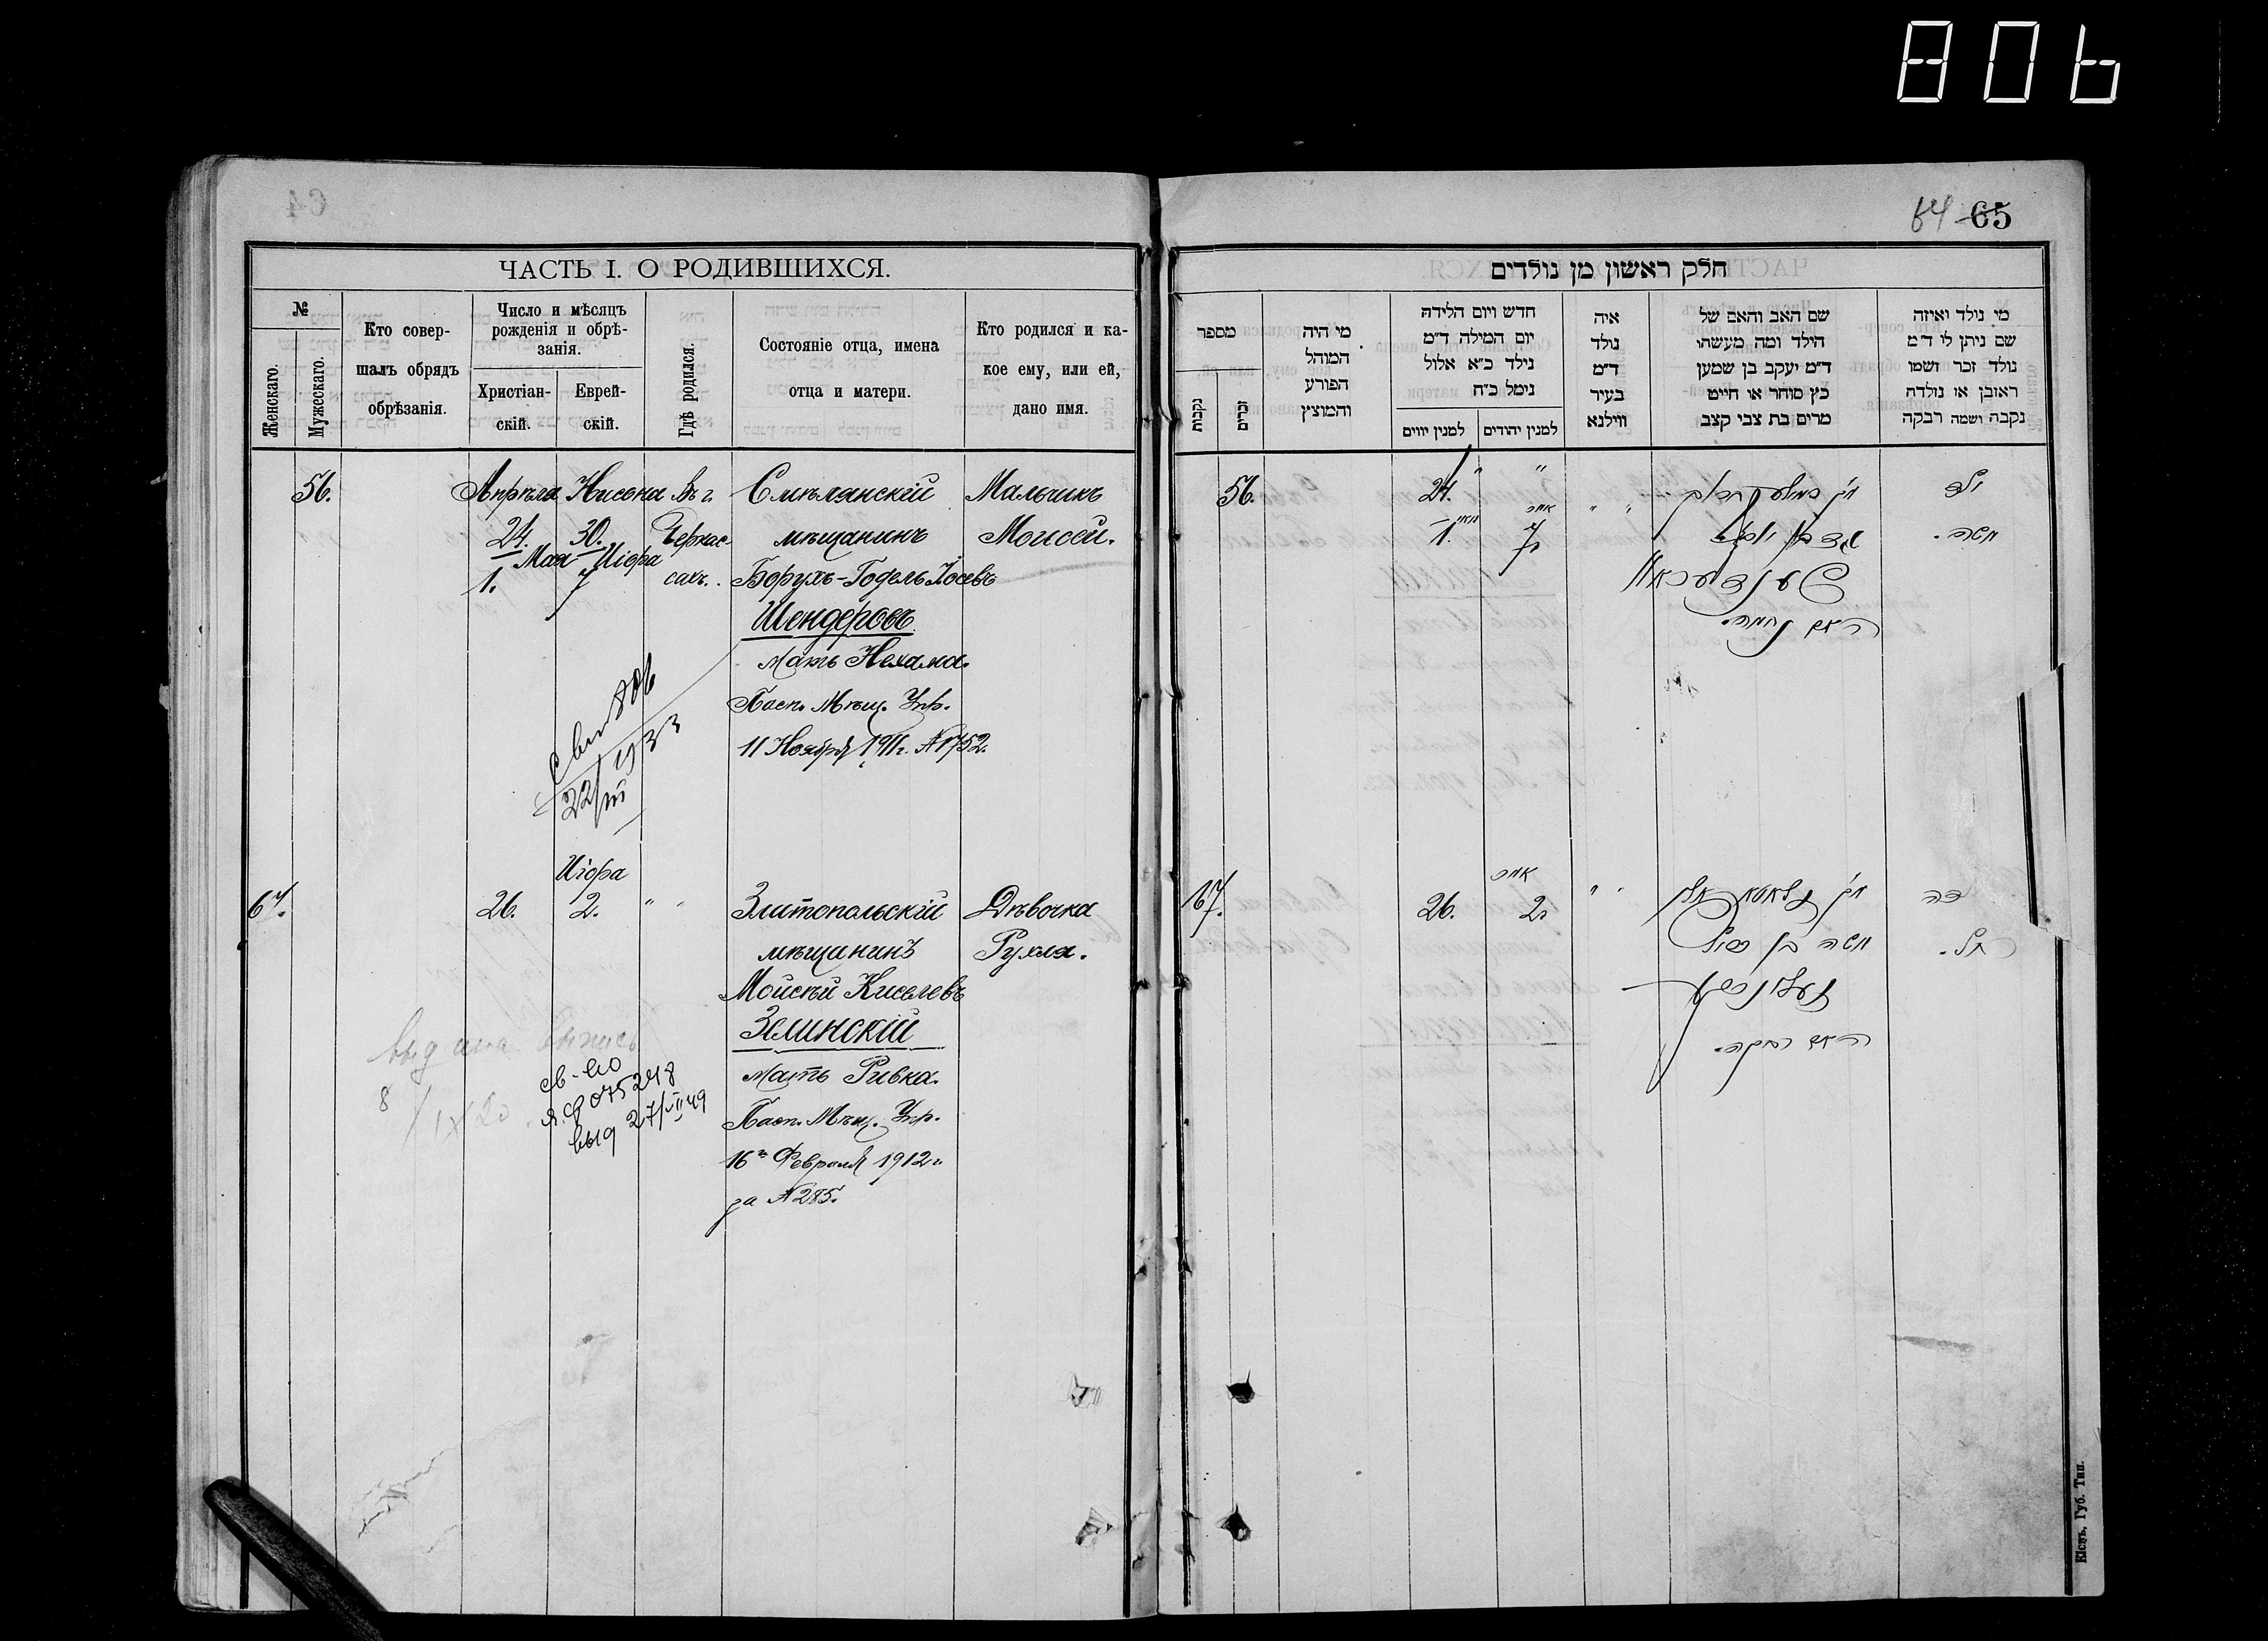 806
64 65
ЧАСТЬ I. О РОДИВШИХСЯ.
№
Женскаго.
Мужескаго.
Кто совер-
шалъ обрядъ
обрѣзанія.
Число и мѣсяцъ
рожденія и обрѣ-
занія.
Христіан-
скій.
Еврей-
скій.
Гдѣ родился.
Состояніе отца, имена
отца и матери.
Кто родился и ка-
кое ему, или ей,
дано имя.
56.
Апрѣля
24.
Мая
1.
Нисона
30.
Иіора
7
Въ г.
Черкас-
сахъ.
Смѣлянскій
мѣщанинъ
Борухъ-Годель Іосевъ
Шендеровъ
Мать Нехама.
Пасп. Мѣщ. Упр.
11 Ноября 1911г. №1752.
Мальчикъ
Моисей.
22/III 1933
67.
26.
Иіора
2.
" "
Златопольскій
мѣщанинъ
Мойсей Киселевъ
Зелинскій
Мать Ривка.
Пасп. Мѣщ. Упр.
16го Февраля 1912г.
за №285.
Дѣвочка
Рухля.
выдана выпись
8/IX 20
св-во
я.ф 075248
выд 27/VII 49
חלק ראשון מן נולדים
מספר
נקבות
זכרים
מי היה
המוהל
הפורע
והמוצץ
חדש ויום הלידה
יום המילה ד״מ
נילד כ״א אלול
נימל כ״ח
למנין יווים
למנין יהודים
איה
נולד
ד״מ
בעיר
ווילנא
שם האב והאם של
הילד ומה מעשהו
ד״מ יעקב בן שמען
כץ סוחר או חייט
מרים בת צבי קצב
מי נולד ואיזה
שם ניתן לו ד״מ
נולד זכר ושמו
ראובן או נולדה
נקבה ושמה רבקה
56.
24.
1.
7
ילד
משה.
האם נחמה.
67.
26.
2
משה בן
האם רבקה.
ילדה
רחל.
Кіевъ, Губ. Тип.